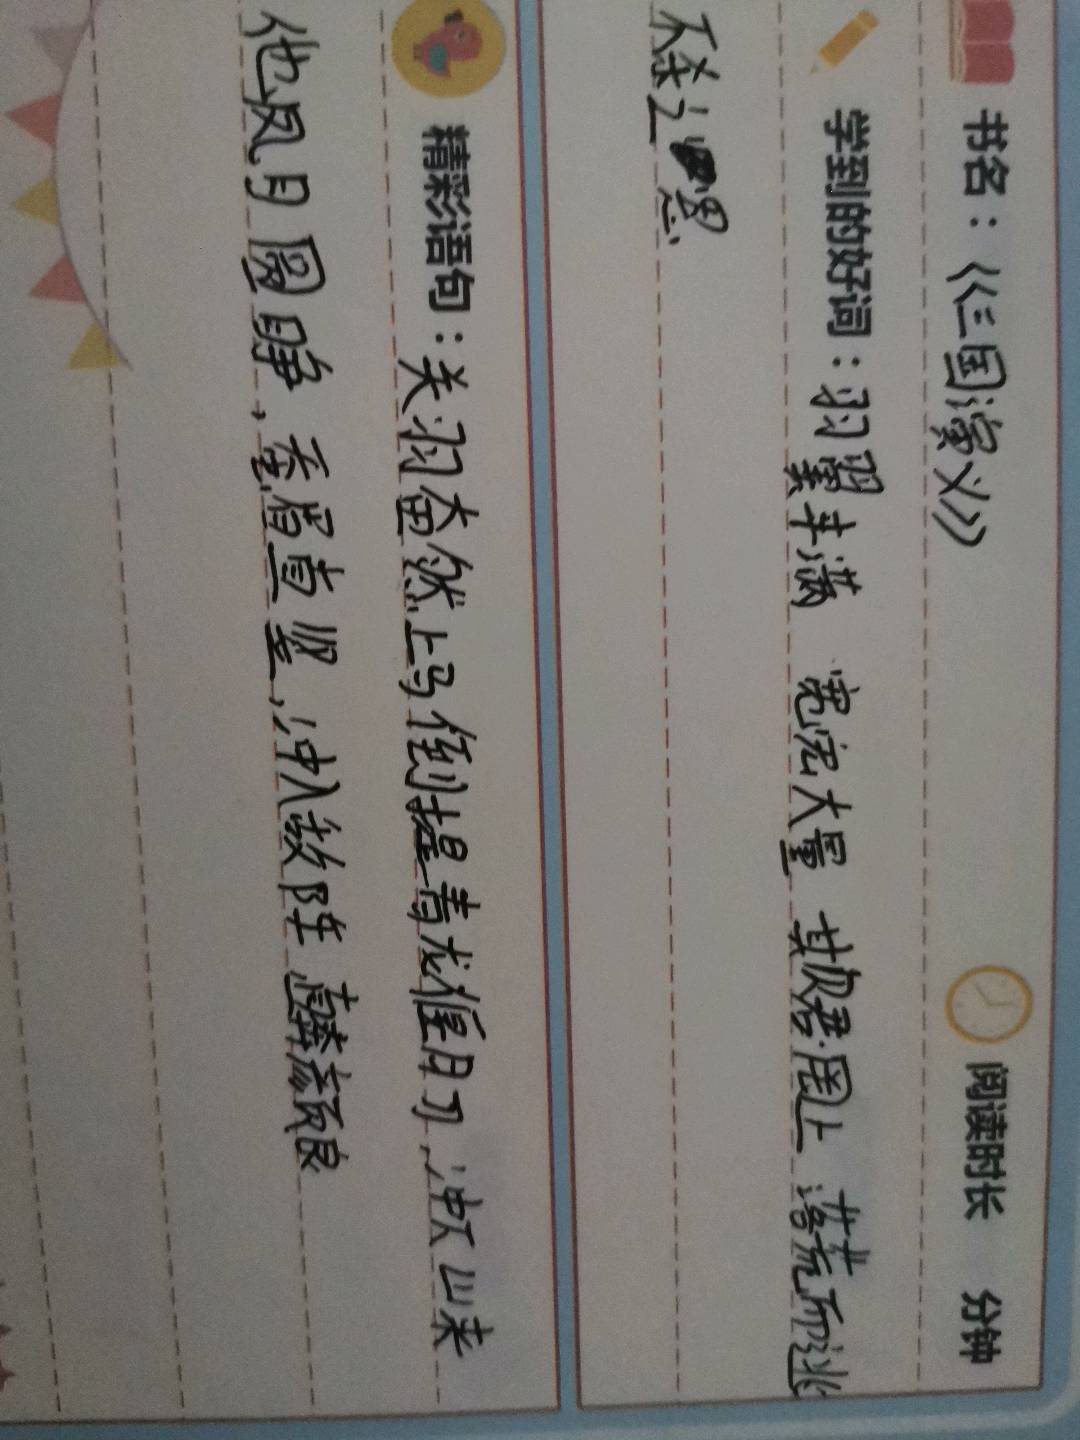 书名：《三国演义》 阅读时长 分钟
学到的好词：羽翼丰满 宽宏大量 其欺君罔上 落荒而逃
不杀之恩
精彩语句：关羽奋然上马倒提青龙偃月刀，冲下山来
他凤目圆睁，蚕眉直竖，冲入敌阵 颜良